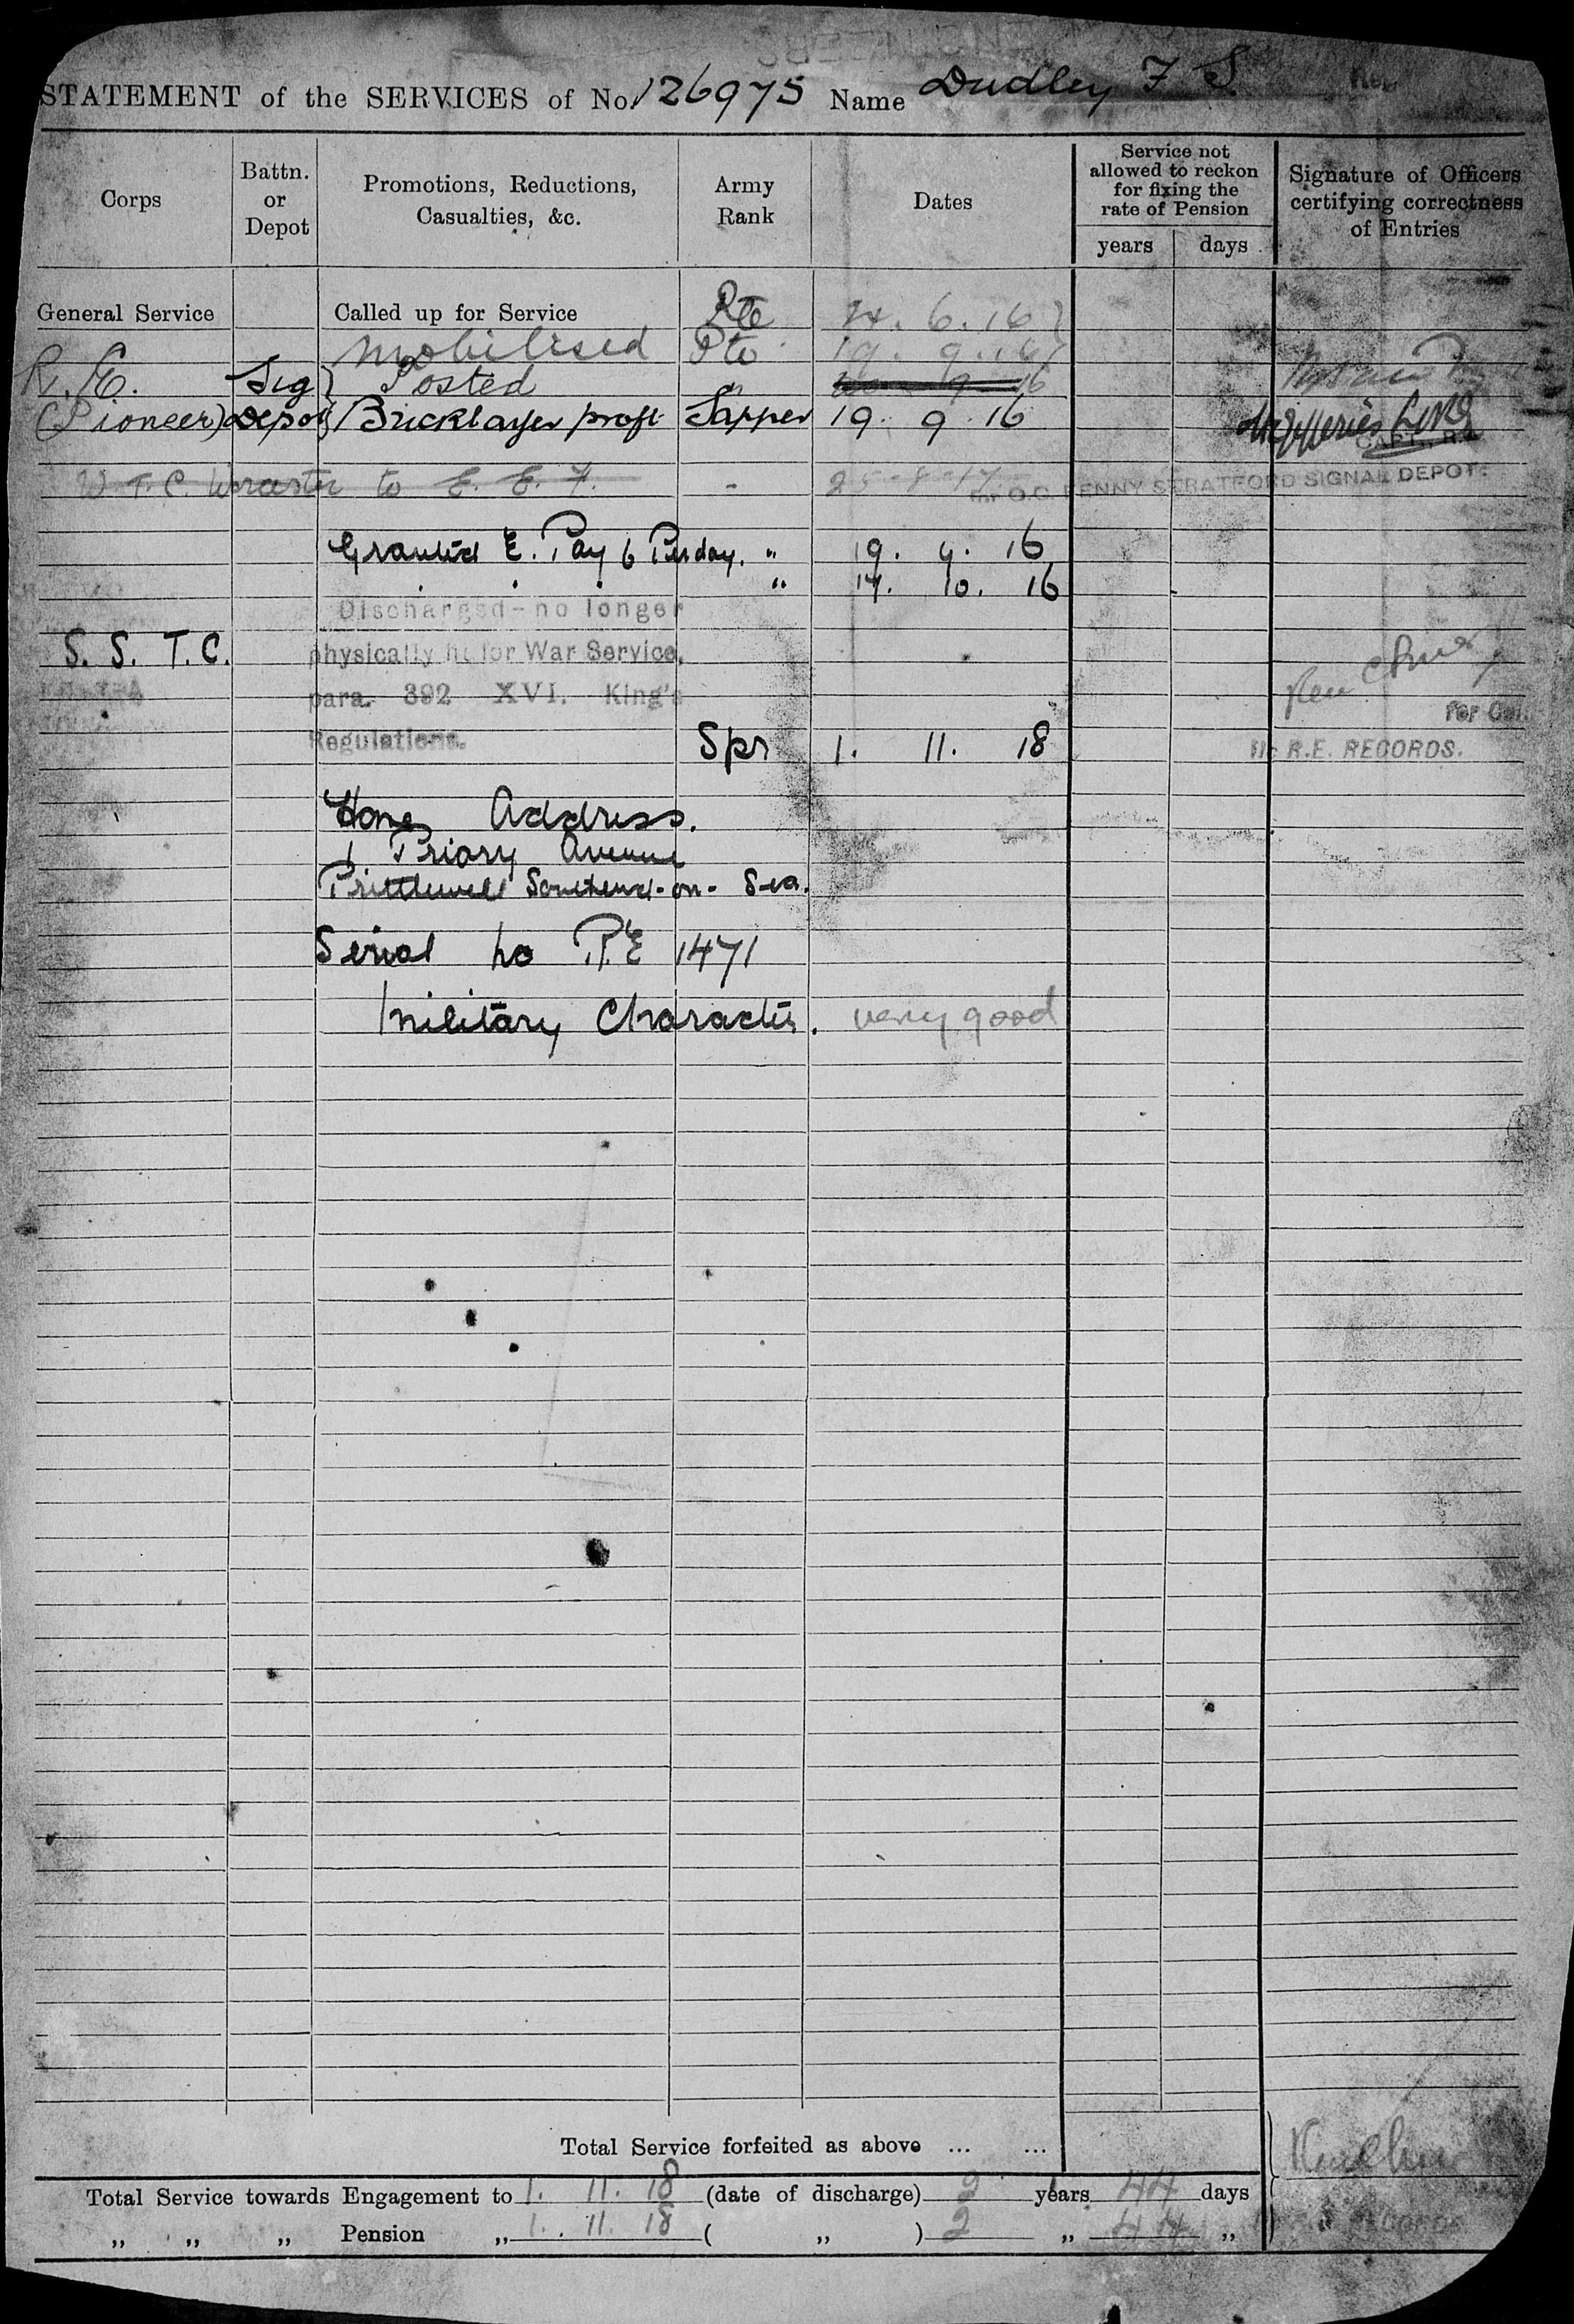 STATEMENT of the SERVICES of No. 126975 Name Dudley F S.
Corps
Battn. or Depot
Promotions, Reductions, Casualties, &c.
Army Rank
Dates
Service not allowed to reckon for fixing the rate of Pension
years days
Signature of Officers certifying correctness of Entries
General Service Called up for Service Pte . 6. 16
Mobilised Pte 19. 9. 16
R. E. Sig Posted " 16
(Pioneer) Depot Bricklayer proft Sapper 19. 9. 16
CAPT., R.E.
W. T. C. Worcester to E. E. F. - 25-8-17
for O.C. FENNY STRATFORD SIGNAL DEPOT.
Granted E. Pay 6 Per day. " 19. 9. 16
" " " " 17. 10. 16
Discharged - no longer
S. S. T. C. physically fit for War Service,
para. 392 XVI. King's
for Col.
Regulations. Spr 1. 11. 18
R.E. RECORDS.
Home Address.
1 Priory Avenue
Prittlewell Southend-on-Sea.
Serial No R.E 1471
Military Character. very good
Total Service forfeited as above ... ...
Total Service towards Engagement to 1. 11. 18 (date of discharge) 2 years 44 days
„ „ „ Pension „ 1. 11. 18 ( „ ) 2 „ 44 „
RECORDS